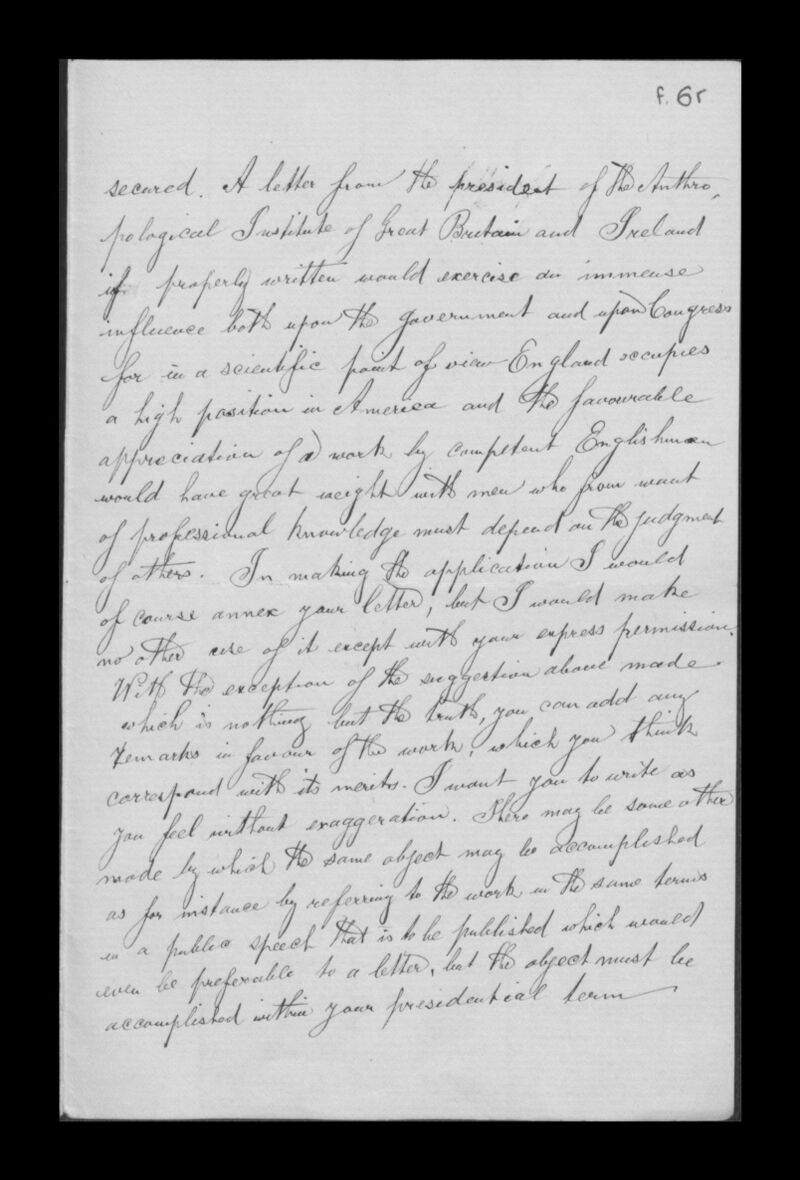 f. 6r
secured. A letter from the president of the Anthro,
pological Institute of Great Britain and Ireland
if properly written would exercise an immense
influence both upon the government and upon Congress
for in a scientific point of view England occupies
a high position in America and the favourable
appreciation of a work by competent Englishmen
would have great weight with men who from want
of professional knowledge must depend on the judgment
of others. In making the application I would
of course annex your letter, but I would make
no other use of it except with your express permission.
With the exception of the suggestion above made
which is nothing but the truth, you can add any
remarks in favour of the work, which you think
correspond with its merits. I want you to write as
you feel without exaggeration. There may be some other
mode by which the same object may be accomplished
as for instance by referring to the work in the same terms
in a public speech that is to be published which would
even be preferable to a letter, but the object must be
accomplished within your presidential term